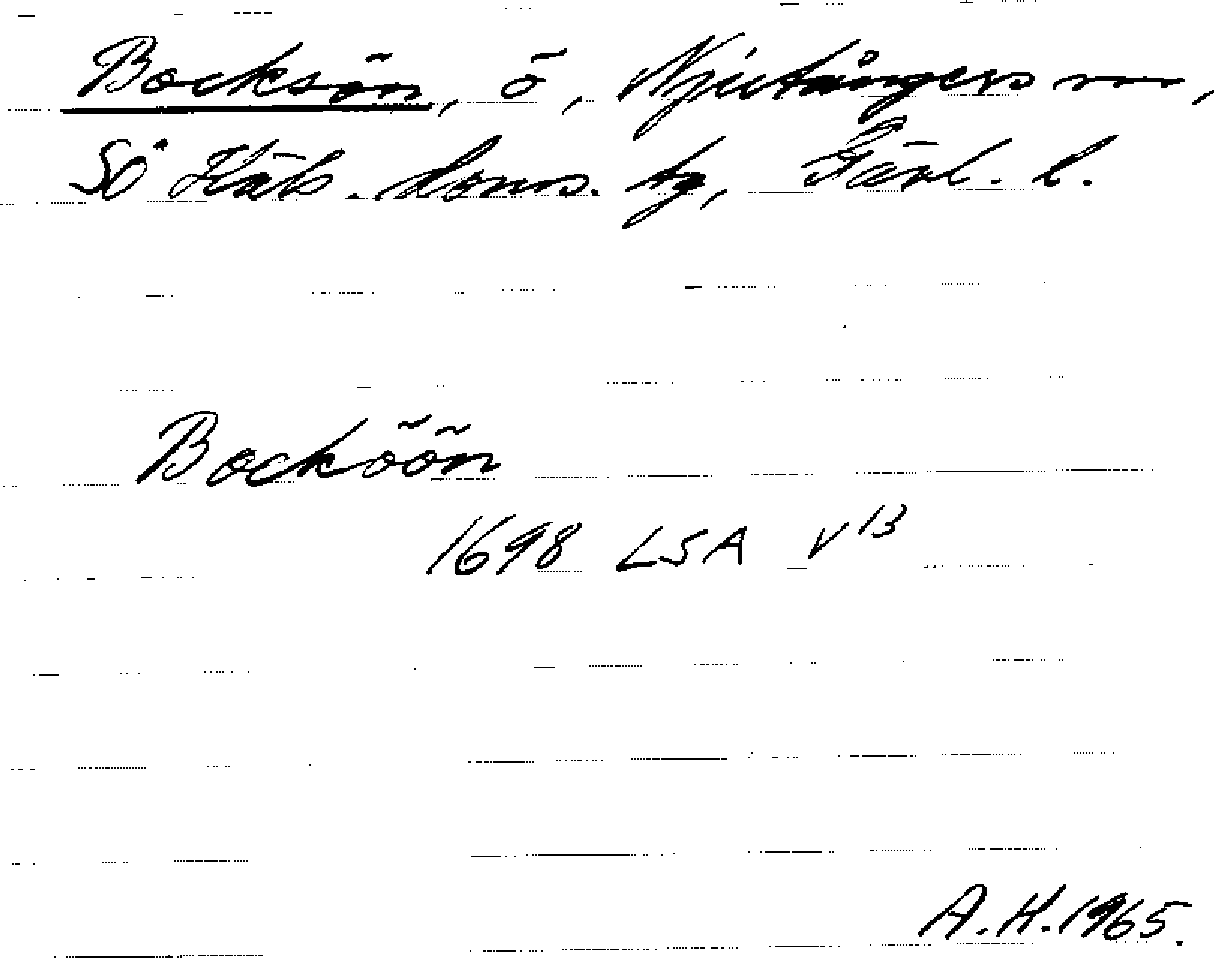 Bocksön, ö, Njutångers sn,
Sö Häls. doms. tg, Gävl. l.
Bocköön
1698 LSA V13
A.H. 1965.